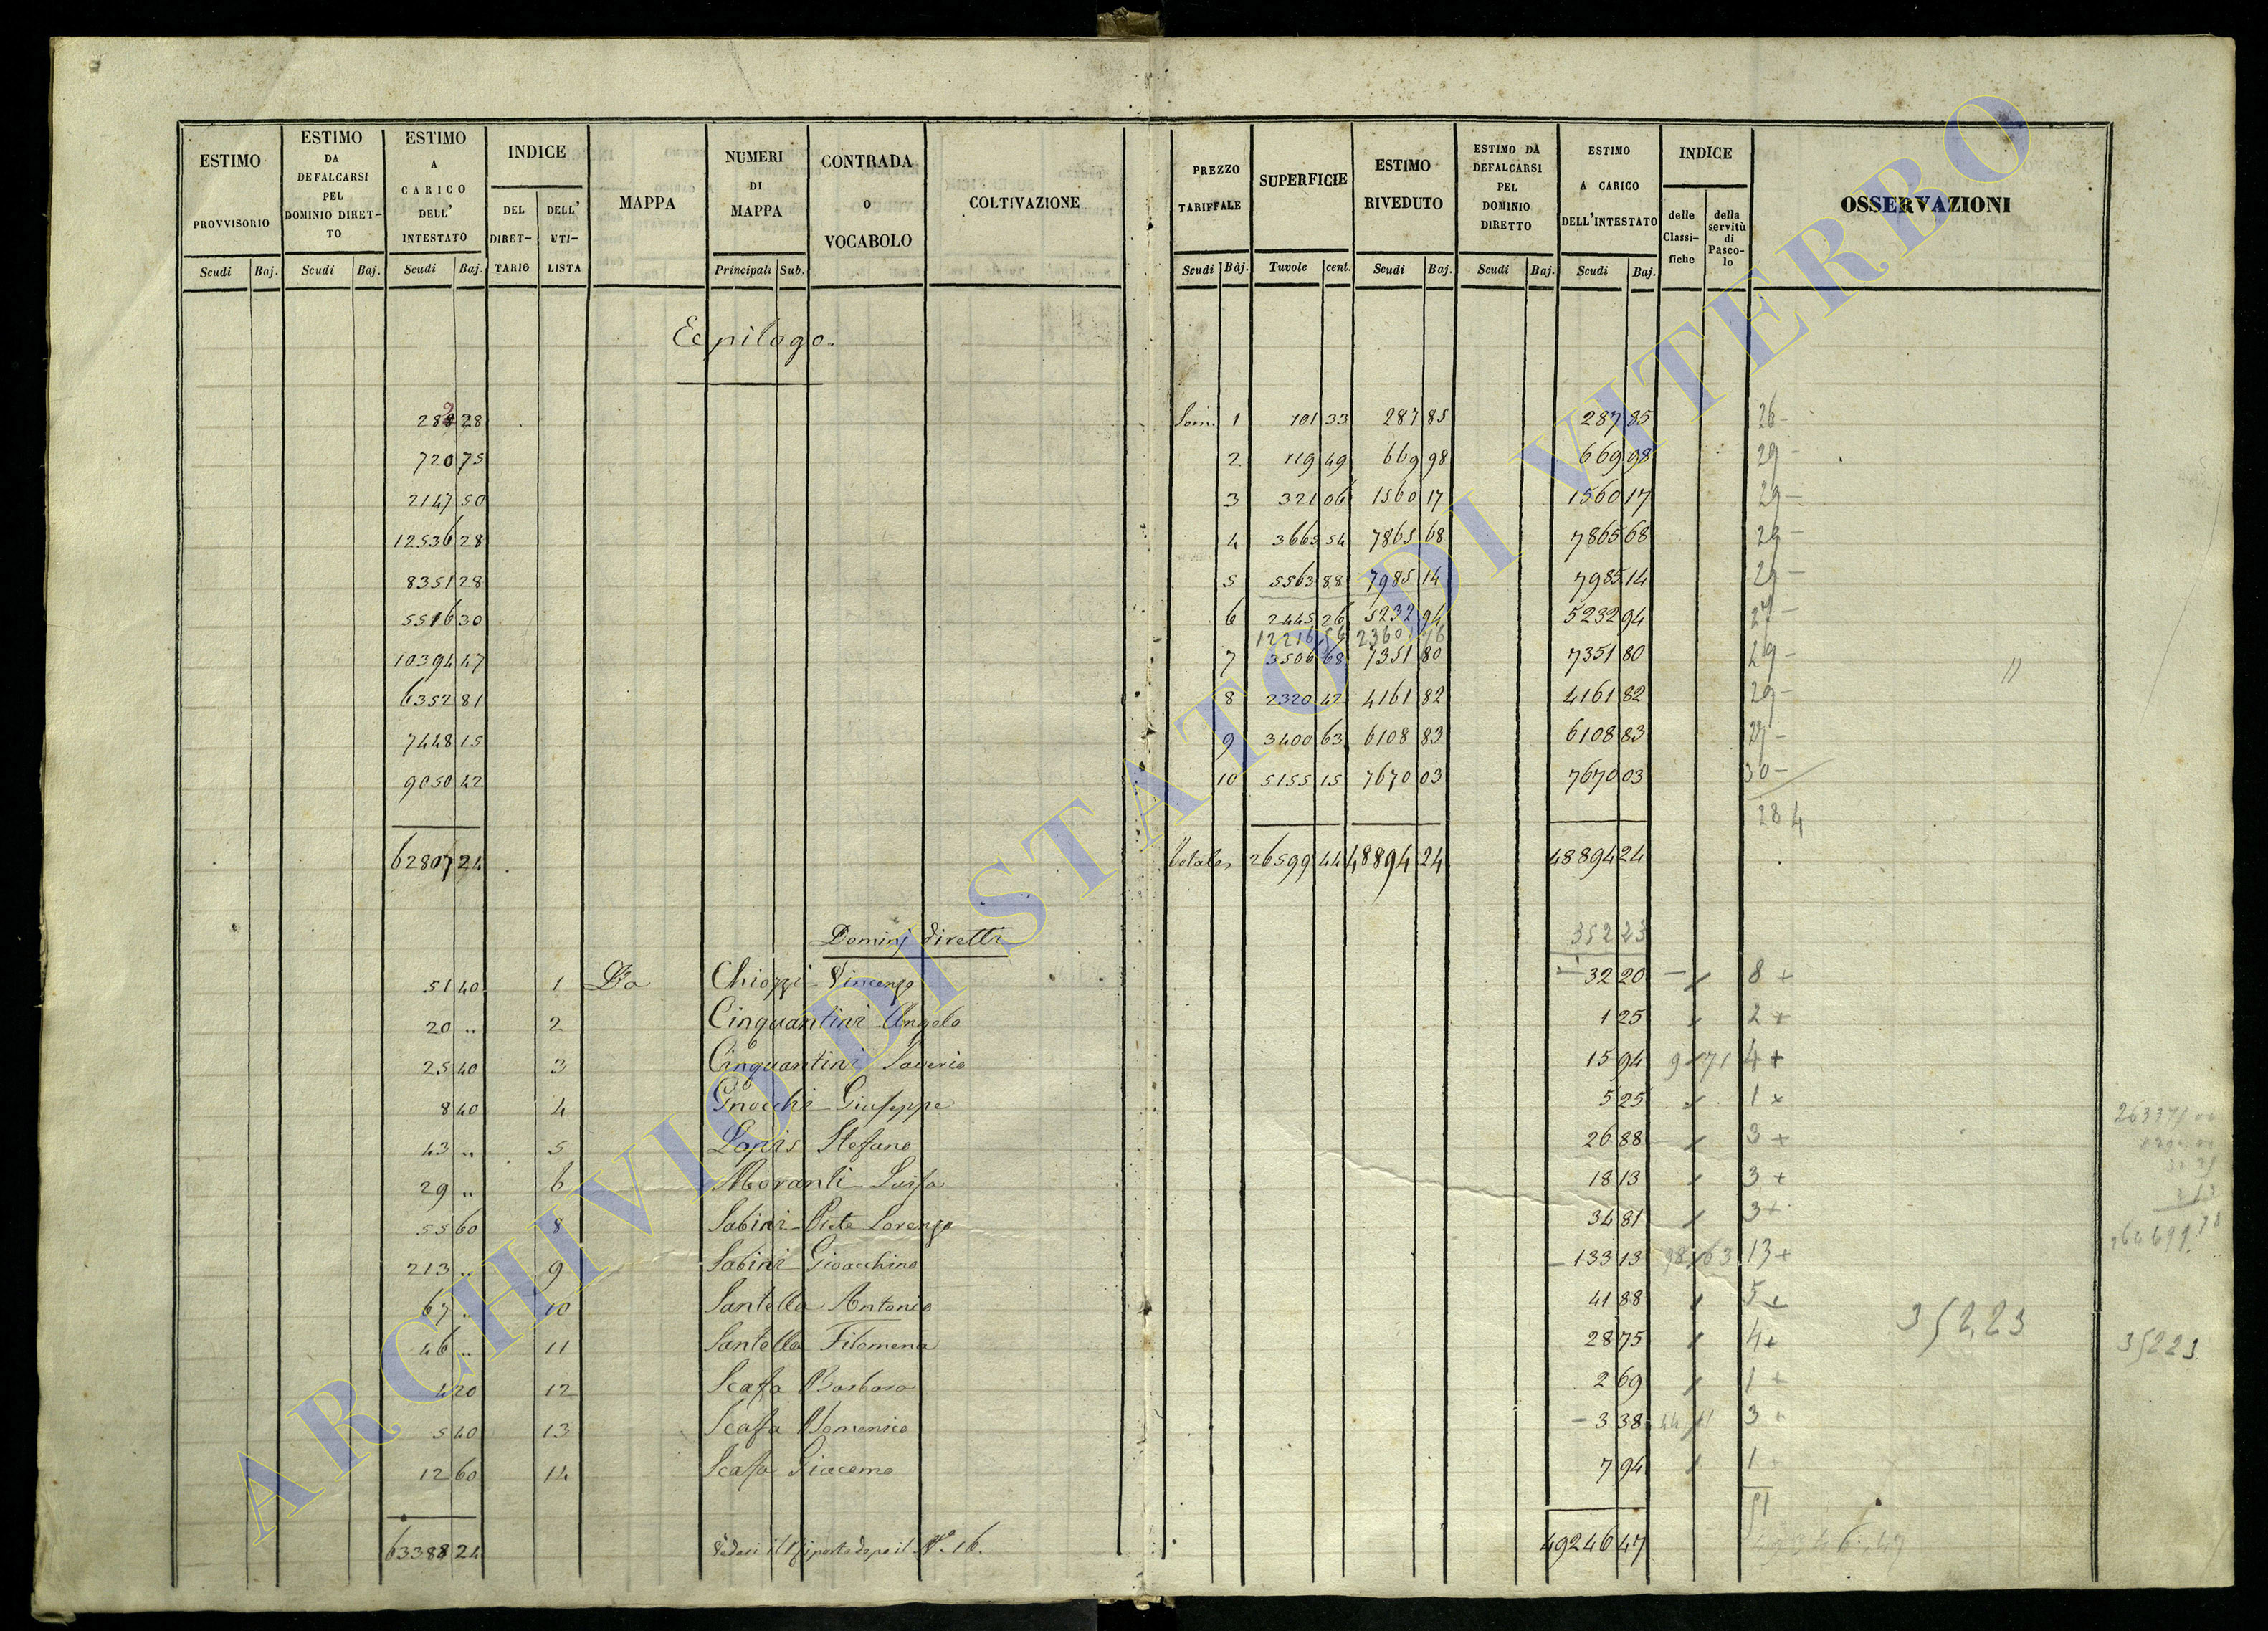 ESTIMO PROVVISORIO Scudi Baj.
ESTIMO DA DEFALCARSI PEL DOMINIO DIRET- TO Scudi Baj.
ESTIMO A CARICO DELL' INTESTATO Scudi Baj.
INDICE DEL DIRET- TARIO DELL' UTI- LISTA
MAPPA
NUMERI DI MAPPA Principali Sub.
CONTRADA o VOCABOLO
COLTIVAZIONE
PREZZO TARIFFALE Scudi Baj.
SUPERFICIE Tavole cent.
ESTIMO RIVEDUTO Scudi Baj.
ESTIMO DA DEFALCARSI PEL DOMINIO DIRETTO Scudi Baj.
ESTIMO A CARICO DELL'INTESTATO Scudi Baj.
INDICE delle Classi- fiche della servitù di Pasco- lo
OSSERVAZIONI
Epilogo.
28 1 101 33 287 85 287 85 26 -
720 75 2 119 49 669 98 669 98 29 -
2147 50 3 321 06 1560 17 1560 17 29 -
12536 28 4 3665 54 7865 68 7865 68 29 -
8351 28 5 5563 88 7985 14 7985 14 29 -
5516 30 6 2445 26 5232 94 5232 94 27 -
12216 56
10394 47 7 3506 68 7351 80 7351 80 29 -
6352 81 8 2320 42 4161 82 4161 82 29 -
7448 15 9 3400 63 6108 83 6108 83 -
9050 42 10 5155 15 7670 03 7670 03 30 -
284
62807 24 Totale 26599 44 48894 24 48894 24
Dominj diretti 352 23
51 40 1 Da Chiozzi Vincenzo 32 20 8 +
20 " 2 Cinquantini Angelo 1 25 2 +
25 40 3 Cinquantini Saverio 15 94 9 71 4 +
8 40 4 Gnocchi Giuseppe 5 25 1 x
43 " 5 Lapis Stefano 26 88 3 +
29 " 6 Moranti Luisa 18 13 3 +
55 60 8 Sabini Prete Lorenzo 34 81 3 +
213 " 9 Sabini Gioacchino 133 13 98 63 13 +
67 " 10 Santella Antonio 41 88 5 +
46 " 11 Santella Filomena 28 75 4 +
4 20 12 Scafa Barbara 2 69 1 +
5 40 13 Scafa Domenico - 3 38 3 +
12 60 14 Scafa Giacomo 7 94 1
352,23
352 23
63388 24 Vedasi il Riporto dopo il N.° 16. 49246 47
ARCHIVIO DI STATO DI VITERBO